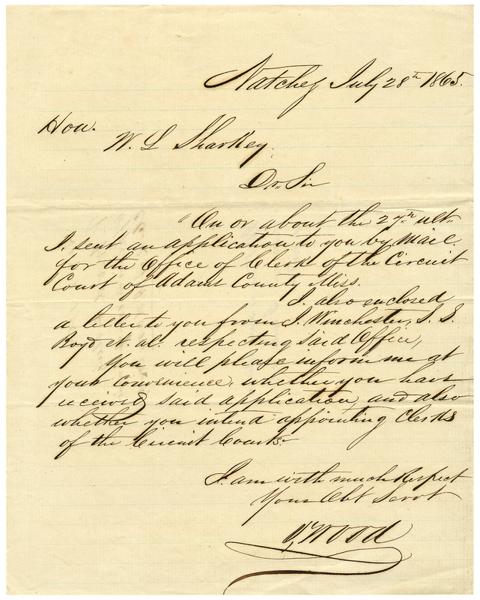 Natchez July 28th 1865.
Hon.
W. L Sharkey.
Dr. Sir
On or about the 27th ult.
I sent an application to you by Mail.
for the Office of Clerk of the Circuit
Court of Adams County Miss.
I also enclosed
a letter to you from J. Winchester, S. S.
Boyd et. al. respecting said Office,
You will please inform me at
your convenience, whether you have
received said application and also
whether you intend appointing Clerks
of the Circuit Courts-
I am with much Respect
Your Obt Servt
Wood